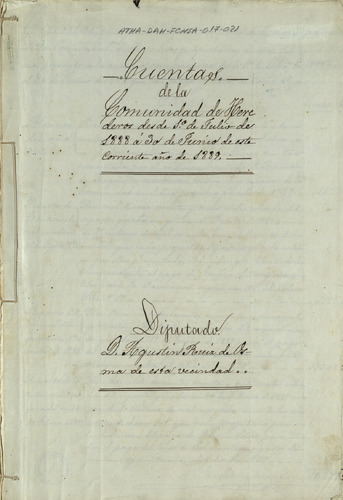 ATHA-DAH-FCNSA-017-021
Cuentas.
de la
Comunidad de Here
deros desde 1º. de Julio de
1888 á 30 de Junio de este
corriente año de 1889.
Diputado
D. Agustin Ruiz de Os-
ma de esta vecindad..